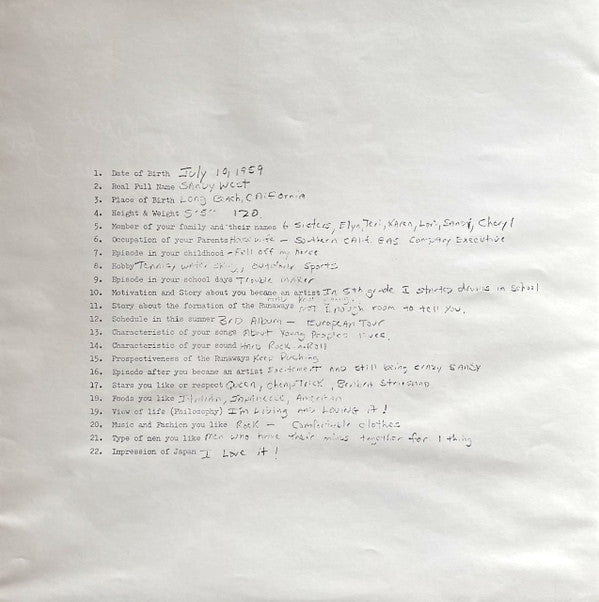 1. Date of Birth July 10, 1959
2. Real Full Name Sandy West
3. Place of Birth Long Beach, California
4. Height & Weight 5'5" 120
5. Member of your family and their names 6 Sisters, Ellyn, Teri, Karen, Lori, Sandy, Cheryl
6. Occupation of your Parents Housewife - Southern Calif. Gas Company Executive
7. Episode in your childhood - Fell off my horse
8. Hobby Tennis, water skiing, outdoor sports
9. Episode in your school days Trouble maker
10. Motivation and Story about you became an artist In 5th grade I started drums in school
11. Story about the formation of the Runaways Not Enough room to tell you.
12. Schedule in this summer 3rd Album - European Tour
13. Characteristic of your songs About Young Peoples lives.
14. Characteristic of your sound Hard Rock-n-Roll
15. Prospectiveness of the Runaways Keep Pushing
16. Episode after you became an artist Excitement and still being crazy Sandy
17. Stars you like or respect Queen, Cheap Trick, Barbra Streisand
18. Foods you like Italian, Japanese, American
19. View of life (Philosophy) I'm Living and Loving it!
20. Music and Fashion you like Rock - Comfortable clothes
21. Type of men you like Men who have their minds together for 1 thing
22. Impression of Japan I Love it!